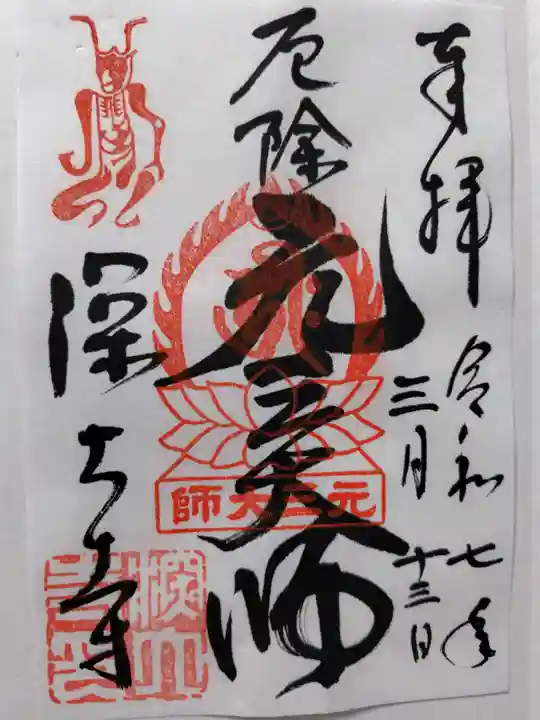 奉拝
令和七年
三月
十三日
厄除
元三大師
師大三元
深大寺